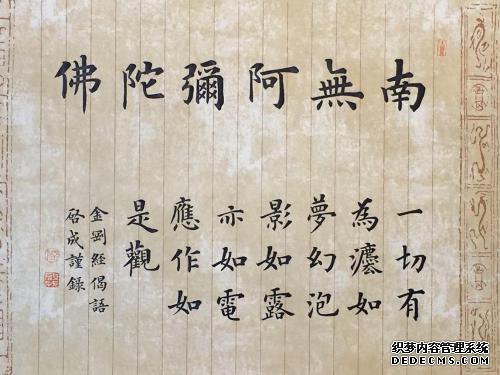 南無阿彌陀佛
一切有
為灋如
夢幻泡
影如露
亦如電
應作如
是觀
金剛經偈語
啓成謹錄
织梦内容管理系统
DEDECMS.COM